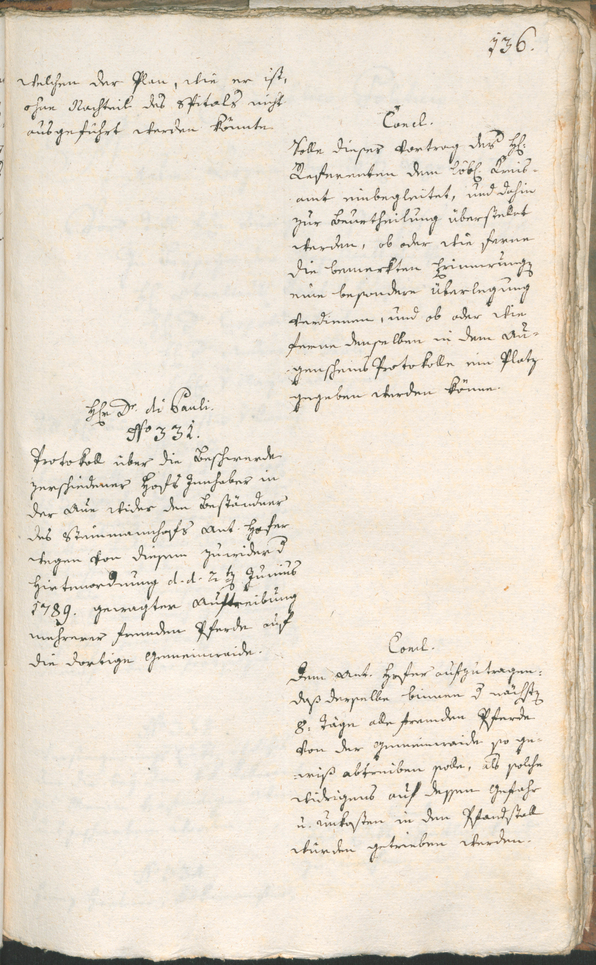 136.
welchen der Plan, wie er ist,
ohne Nachteil des Spitals nicht
ausgeführt werden könnte
Concl.
Solle dieser Vortrag des H:
Referenten dem löbl. Kreis-
amt einbegleitet, und dahin
zur Beurtheilung überstellet
werden, ob oder wie ferne
die bemerkten Erinnerung
eine besondere Überlegung
verdienen, und ob oder wie
ferne denselben in dem Au-
genscheins Protokolle ein Platz
gegeben werden könne.
Hr Dr. di Pauli.
No 331.
Protokoll über die Beschwerde
verschiedener Hofs Innhaber in
der Aue wider den Beständner
des Steinmannhofs Ant. Hofer
wegen von diesem zuwider d
Hirtenordnung d. d. 2t Junius
1789. gewagter Auftreibung
mehrerer fremden Pferde auf
die dortige Gemeinweide.
Concl.
Dem Ant. Hofer aufzutragen:
daß derselbe binnen d nächst
8. Täge alle fremden Pferde
von der Gemeinweide so ge-
wiß abtreiben solle, als solche
widrigens auf dessen Gefahr
u. Unkosten in den Pfandstall
würden getrieben werden.